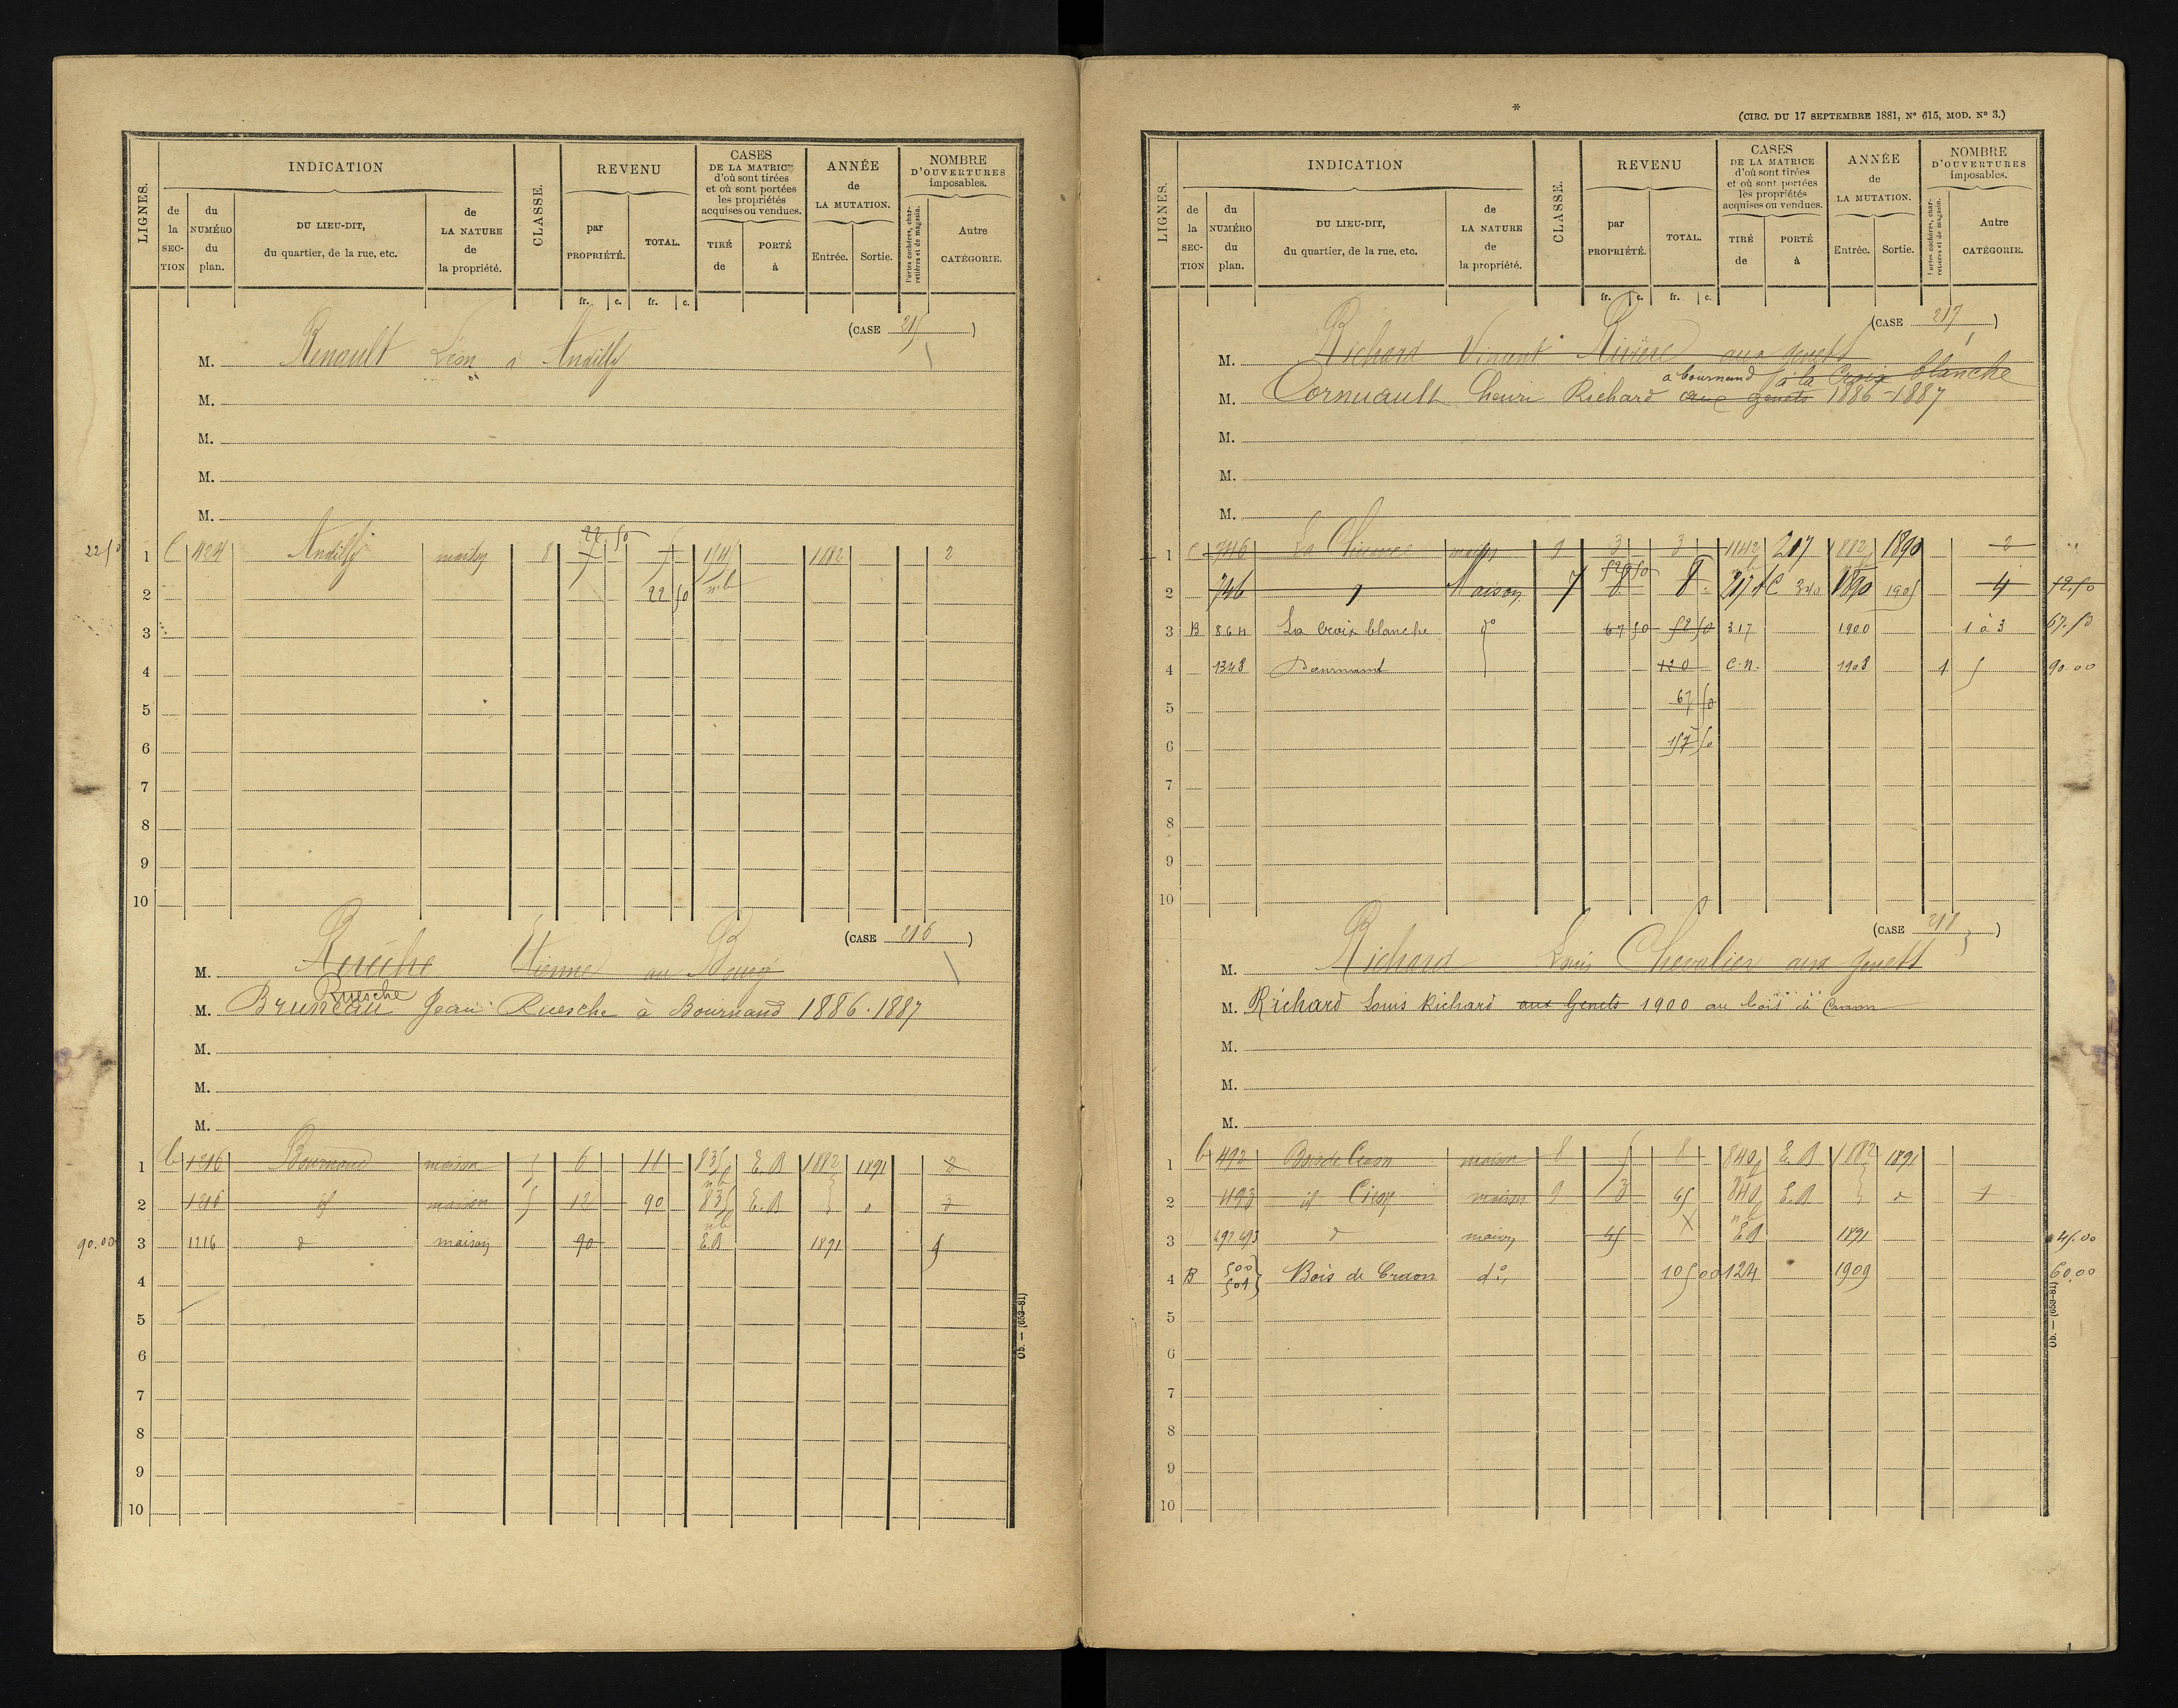 LIGNES.
INDICATION
CLASSE.
REVENU
CASES
DE LA MATRICE
d'où sont tirées
et où sont portées
les propriétés
acquises ou vendues.
ANNÉE
de
LA MUTATION.
NOMBRE
D'OUVERTURES
imposables.
de la SEC-TION
du NUMÉRO du plan.
DU LIEU-DIT,
du quartier, de la rue, etc.
de LA NATURE de la propriété.
par PROPRIÉTÉ.
TOTAL.
TIRÉ de
PORTÉ à
Entrée.
Sortie.
Portes cochères, charretières et de magasin.
Autre CATÉGORIE.
fr. c. fr. c.
(CASE 215)
M. Renault Léon à Andilly
M.
M.
M.
M.
22 50
22 50 1 C 424 Andilly maison 8 1882 2
2 22 50
3
4
5
6
7
8
9
10
(CASE 216)
M. Etienne au Bourg
Ruesche
M. Bruneau Jean Ruesche à Bournand 1886-1887
M.
M.
M.
1 1216 Bournand maison 6 11 835 E.B 1882 1891 2
2 1216 id maison 5 12 90 835 E.B 3
90.00 3 1216 d maison 90 E.B 1891
4
5
6
7
8
9
10
Ob. — (653-81)
*
(CIRC. DU 17 SEPTEMBRE 1881, Nº 615, MOD. Nº 3.)
LIGNES.
INDICATION
CLASSE.
REVENU
CASES
DE LA MATRICE
d'où sont tirées
et où sont portées
les propriétés
acquises ou vendues.
ANNÉE
de
LA MUTATION.
NOMBRE
D'OUVERTURES
imposables.
de la SEC-TION
du NUMÉRO du plan.
DU LIEU-DIT,
du quartier, de la rue, etc.
de LA NATURE de la propriété.
par PROPRIÉTÉ.
TOTAL.
TIRÉ de
PORTÉ à
Entrée.
Sortie.
Portes cochères, charretières et de magasin.
Autre CATÉGORIE.
fr. c. fr. c.
(CASE 217)
M. Richard Vincent Rivière aux genets
a bournand à la Croix blanche
M. Cornuault henri Richard aux genets 1886-1887
M.
M.
M.
1 C 746 maison 9 3 3 1142 217 1882 1890 2
2 746 Maison 7 8 217 1890 1905 4 12.50
3 B 864 La croix blanche dº 67 50 52 50 317 1900 1 à 3 67.50
4 1348 Bournand 120 C.N. 1908 1 5 90.00
5 67 50
6 157 50
7
8
9
10
(CASE 218)
M. Richard Louis Chevalier aux genets
M. Richard Louis Richard aux Genets 1900 au bois de Craon
M.
M.
M.
1 492 Bois de Craon maison 8 5 8 840 E.B 1882 1891
2 493 id Craon maison 9 3 45 840 E.B 1
3 492 493 d maison 45 E.B 1891 45.00
4 B 500 504 Bois de Craon dº 105 00 124 1909 60,00
5
6
7
8
9
10
Ob. — (653-81)